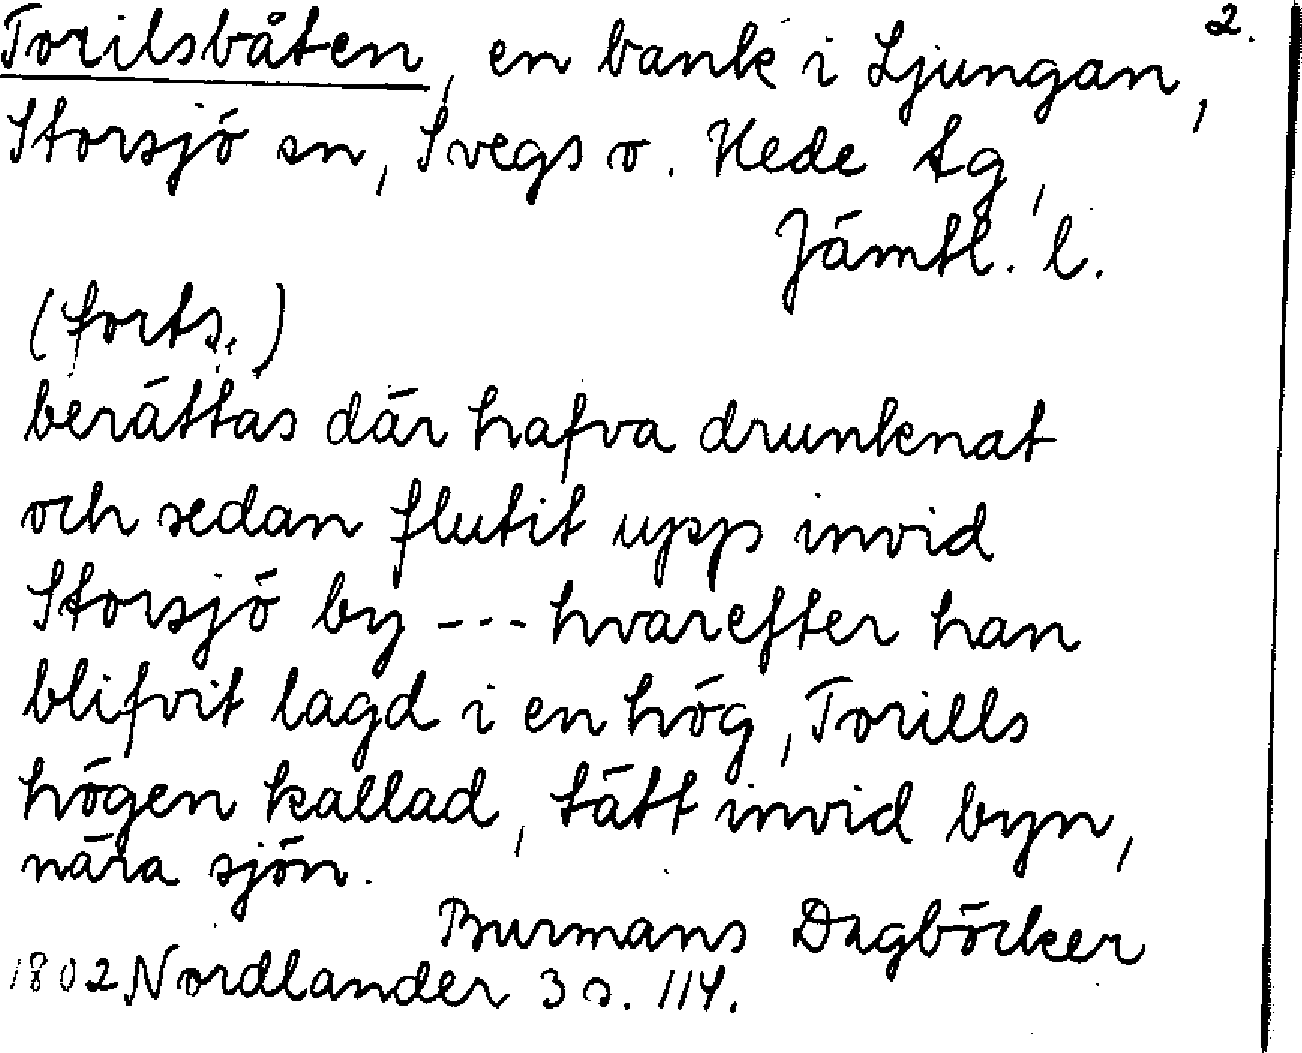 2.
Torilsbåten, en bank i Ljungan,
Storsjö sn, Svegs o. Hede tg,
Jämtl. l.
(forts.)
berättas där hafva drunknat
och sedan flutit upp invid
Storsjö by --- hvarefter han
blifvit lagd i en hög, Torills
högen kallad, tätt invid byn,
nära sjön.
Burmans Dagböcker
1802 Nordlander 3 s. 114.